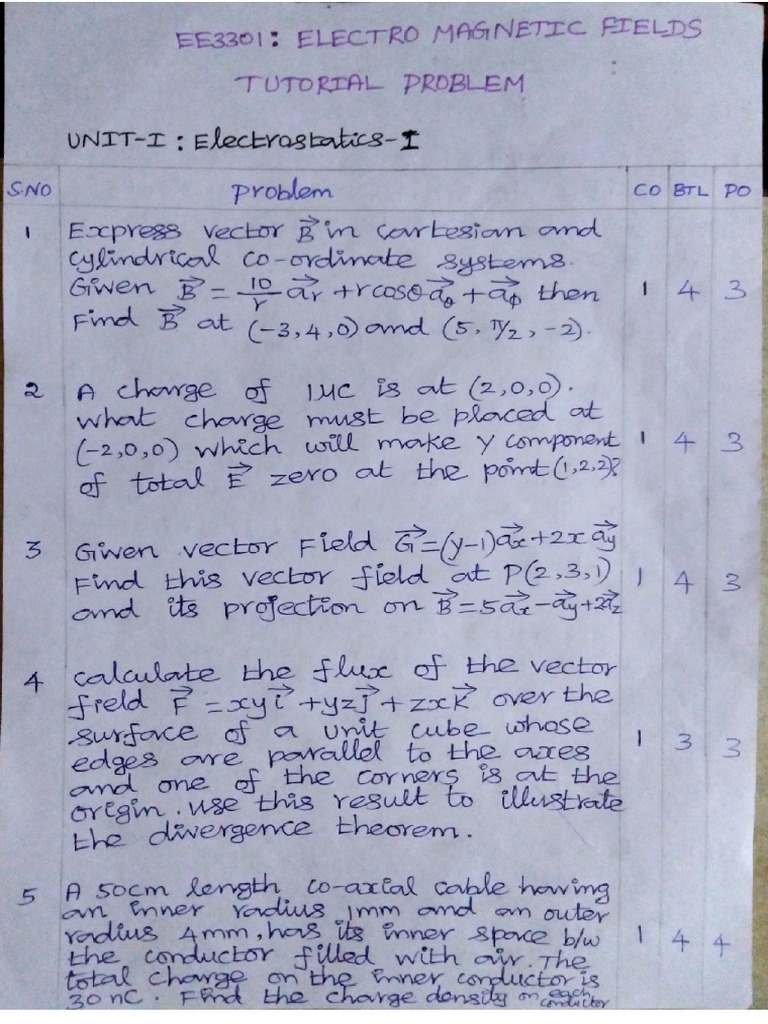 EE3301: ELECTRO MAGNETIC FIELDS
TUTORIAL PROBLEM
UNIT-I : Electrostatics-I
S.NO Problem CO BTL PO
1 Express vector B⃗ in cartesian and
cylindrical co-ordinate systems.
Given B⃗ = 10/r a⃗r + r cosθ a⃗θ + a⃗ϕ then 1 4 3
Find B⃗ at (-3,4,0) and (5, π/2, -2).
2 A charge of 1μC is at (2,0,0).
what charge must be placed at
(-2,0,0) which will make y component 1 4 3
of total E⃗ zero at the point (1,2,2)?
3 Given vector Field G⃗ = (y-1)a⃗x + 2x a⃗y
Find this vector field at P(2,3,1) 1 4 3
and its projection on B⃗ = 5a⃗x - a⃗y + 2a⃗z
4 calculate the flux of the vector
field F⃗ = xy i⃗ + yz j⃗ + zx k⃗ over the
surface of a unit cube whose 1 3 3
edges are parallel to the axes
and one of the corners is at the
origin. use this result to illustrate
the divergence theorem.
5 A 50cm length co-axial cable having
an inner radius 1mm and an outer
radius 4mm, has its inner space b/w 1 4 4
the conductor filled with air. The
total charge on the inner conductor is
30 nC. Find the charge density on each conductor